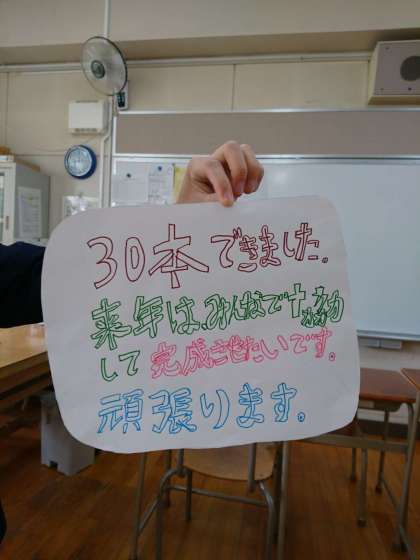 30本できました。
来年は、みんなで協力
して完成させたいです。
頑張ります。